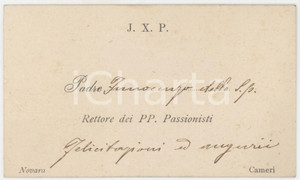 J. X. P.
Padre Innocenzo dello S. p.
Rettore dei PP. Passionisti
Felicitazioni ed augurii
Novara Cameri